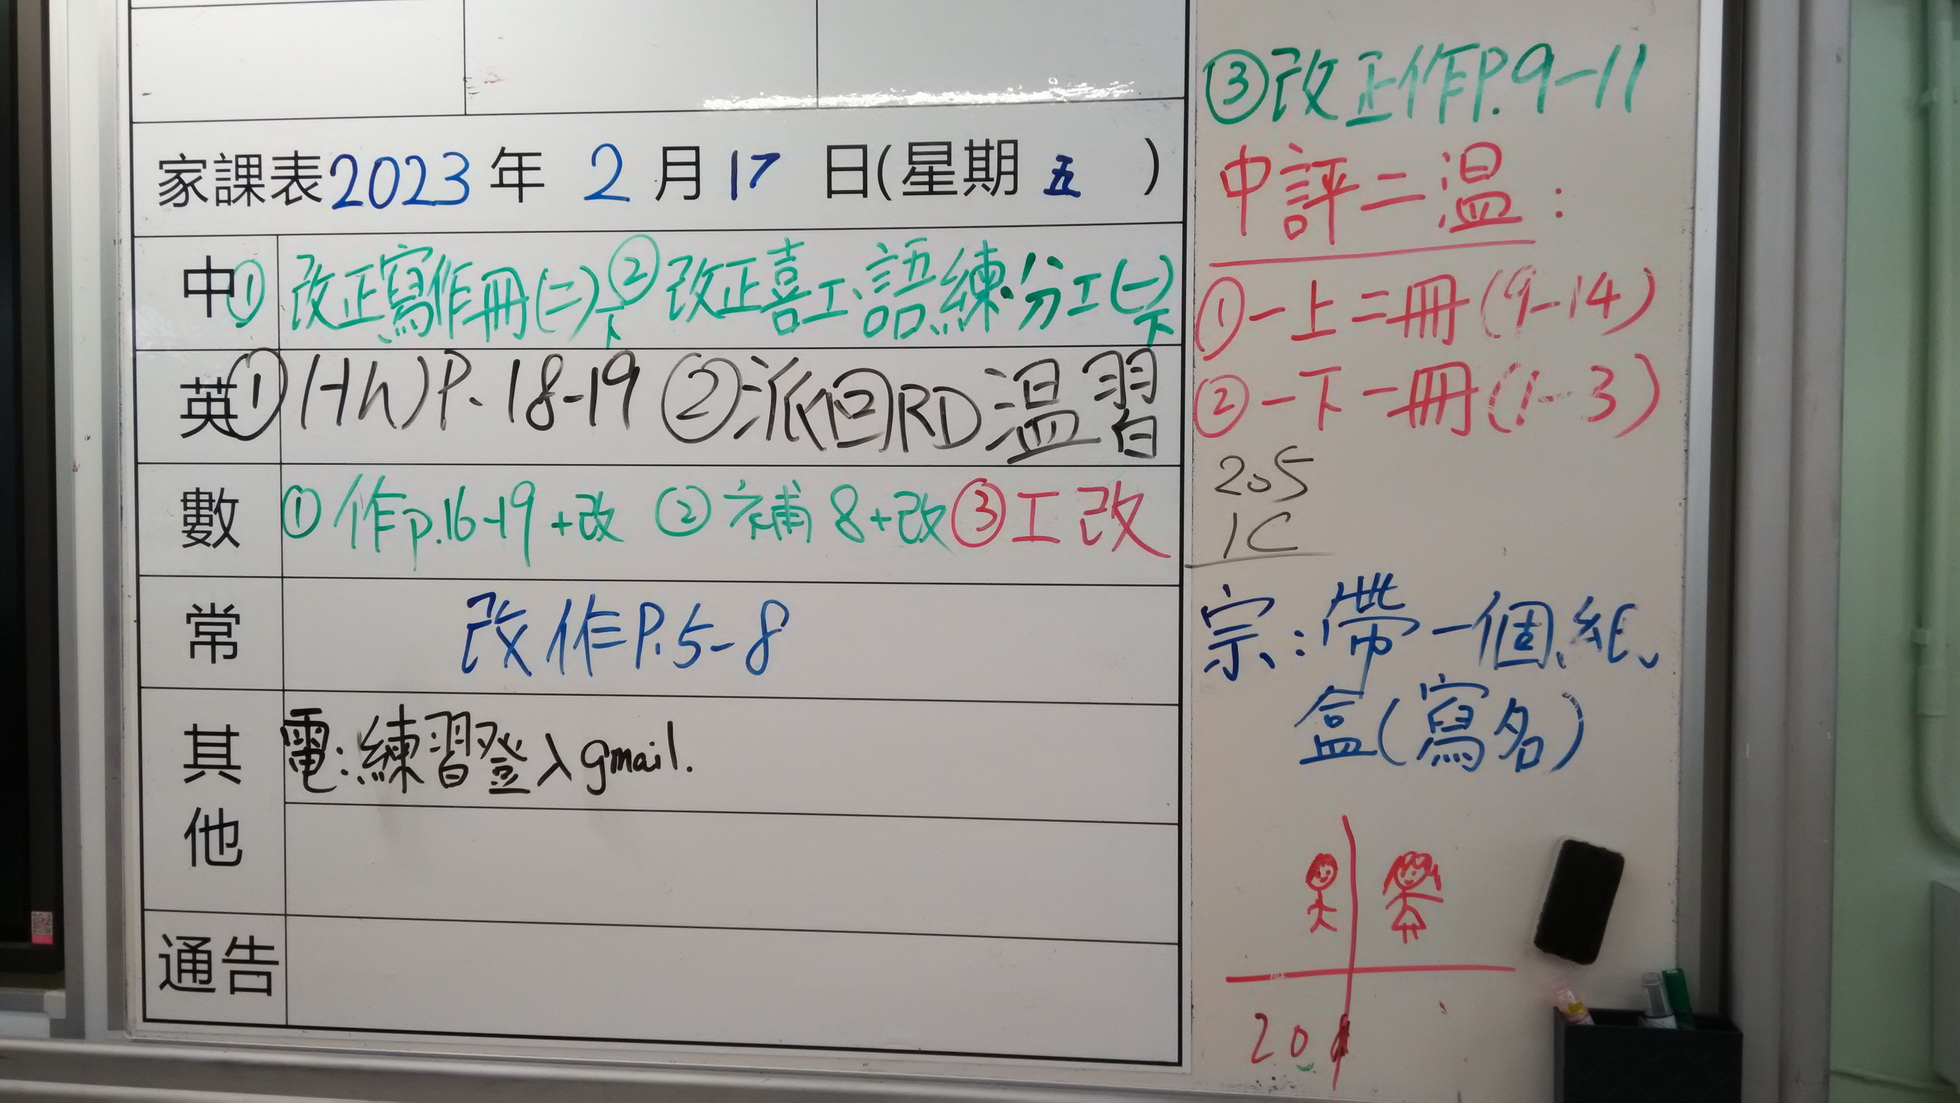 家課表2023年 2月17日(星期五)
中①改正寫作冊(二)下②改正喜工、語練.分工(一)下
英①(HW)P.18-19②派回RD溫習
數①作p.16-19+改 ②補8+改③工改
常 改作P.5-8
其他
電:練習登入gmail.
通告
③改正作P.9-11
中評二溫:
①一上二冊(9-14)
②一下一冊(1-3)
205
1C
宗:帶一個紙
盒(寫名)
20